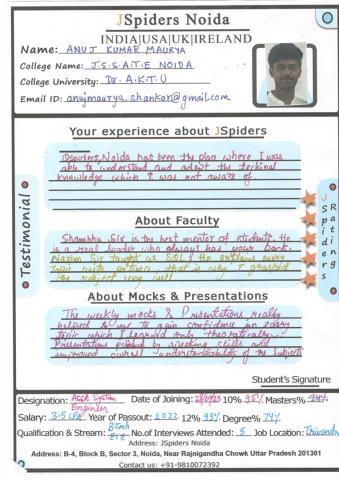 JSpiders Noida
INDIA|USA|UK|IRELAND
Name: ANUJ KUMAR MAURYA
College Name: J.S.S.A.T.E NOIDA
College University: Dr. A.K.T.U
Email ID: anujmaurya.shankar@gmail.com
Your experience about JSpiders
Qspiders, Noida has been the place where I was
able to understand and adopt the technical
knowledge which I was not aware of.
Testimonial
JSpiders
Rating
About Faculty
Shambhu Sir is the best mentor of students. He
is a real leader who always has your back.
Nazim Sir taught us SQL & He explains every
topic with patience, that is why I grasped
the subject very well.
About Mocks & Presentations
The weekly mocks & Presentations really
helped us to gain confidence on every
topic which I learned only theoretically.
Presentations speaking skills and
improved overall understandability of the subjects
Student's Signature
Designation: Asst System Engineer Date of Joining: 10% 95% Masters% 74%
Salary: 3.5 LPA Year of Passout: 2022 12% 93% Degree% 74%
Qualification & Stream: B.Tech ECE No.of Interviews Attended: 5 Job Location: Trivandrum
Address: JSpiders Noida
Address: B-4, Block B, Sector 3, Noida, Near Rajnigandha Chowk Uttar Pradesh 201301
Contact us: +91-9810072392